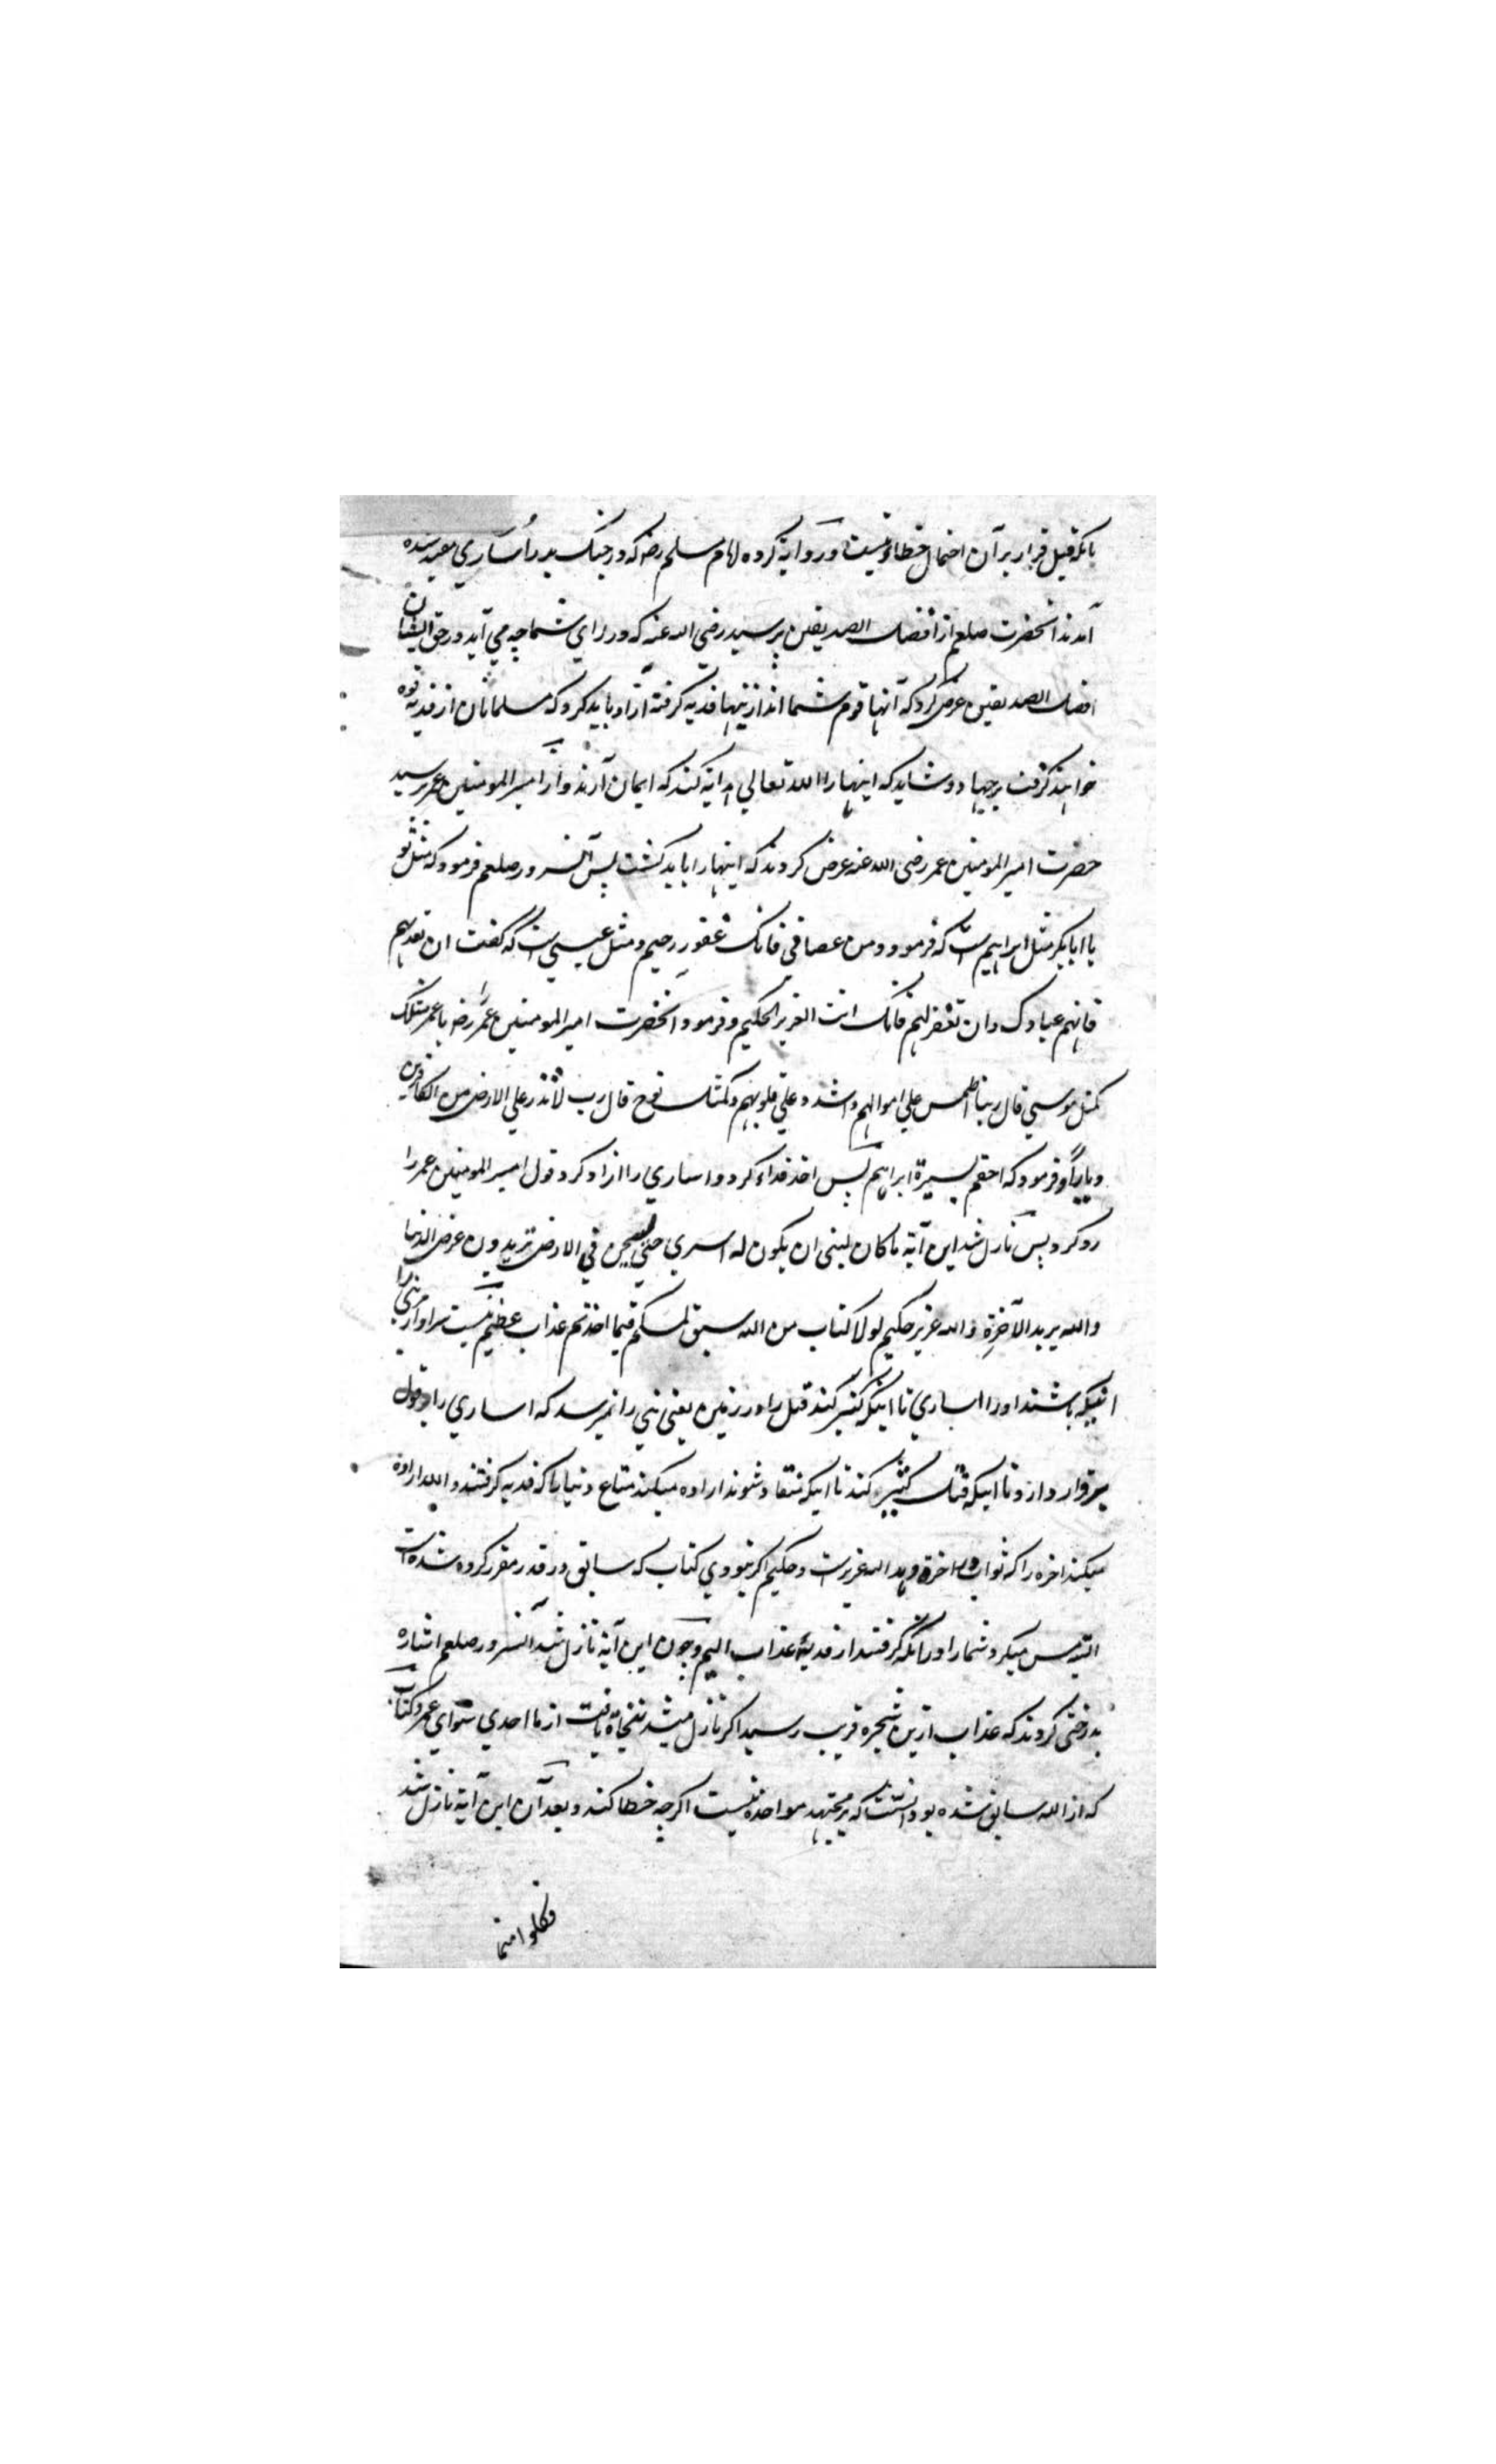 بانکه قبل قرار بر آن احتمال خطاء نیست و روایة کرده امام مسلم رضه که در جنک بدر اُساری مقید شده
آمدند انحضرت صلعم از افضل الصدیقین پرسید رضی الله عنه که در رای شما چه می آید در حق ایشان
افضل الصدیقین عرض کرد که آنها قوم شما اند ازینها فدیه کرفته آزاد باید کرد که مسلمانان از فدیه قوه
خواهند کرفت بر جهاد و شاید که اینها را الله تعالی هدایة کند که ایمان آرند و از امیر المومنین عمر پرسید
حضرت امیر المومنین عمر رضی الله عنه عرض کردند که اینها را باید کشت پس آنسرور صلعم فرمود که مثل تو
یا ابابکر مثل ابراهیم است که فرمود و من عصانی فانک غفور رحیم و مثل عیسی است که کفت ان تعذبهم
فانهم عبادک و ان تغفر لهم فانک انت العزیز الحکیم و فرمود انحضرت امیر المومنین عمر رضه یا عمر مثلک
کمثل موسی قال ربنا اطمس علی اموالهم و اشدد علی قلوبهم و کمثل نوح قال رب لا تذر علی الارض من الکافرین
دیارًا و فرمود که احقم بسیرة ابراهیم پس اخذ فداء کرد و اساری را ازاد کرد و قول امیر المومنین عمر را
رد کرد پس نازل شد این آیة ما کان لنبی ان یکون له اسری حتی یثخن فی الارض تریدون عرض الدنیا
والله یرید الآخرة والله عزیز حکیم لولا کتاب من الله سبق لمسکم فیما اخذتم عذاب عظیم نیست سزاوار نبی را
اینکه باشند اورا اساری تا اینکه کثیر کند قتل را در زمین یعنی نبی را نمیرسد که اساری را در قول
برقرار دارد تا اینکه قتل کثیر کند تا اینکه منقاد شوند اراده میکنند متاع دنیا را که فدیه کرفتند و الله اراده
میکند اخره را که ثواب اخرة دهد الله عزیز است و حکیم اکر نبودی کتاب که سابق در قدر مقرر کرده شده است
البته مس میکرد شمارا در انکه کرفتند از فدیه عذاب الیم و چون این آیة نازل شد آنسرور صلعم اشاره
بدرختی کردند که عذاب ازین شجره قریب رسید اکر نازل میشد نجاة یافت از ما احدی سوای عمر و کتاب
که از الله سابق شده بود انست که بر مجتهد مواخذه نیست اکرچه خطا کند و بعد آن این آیة نازل شد
فکلوا مما